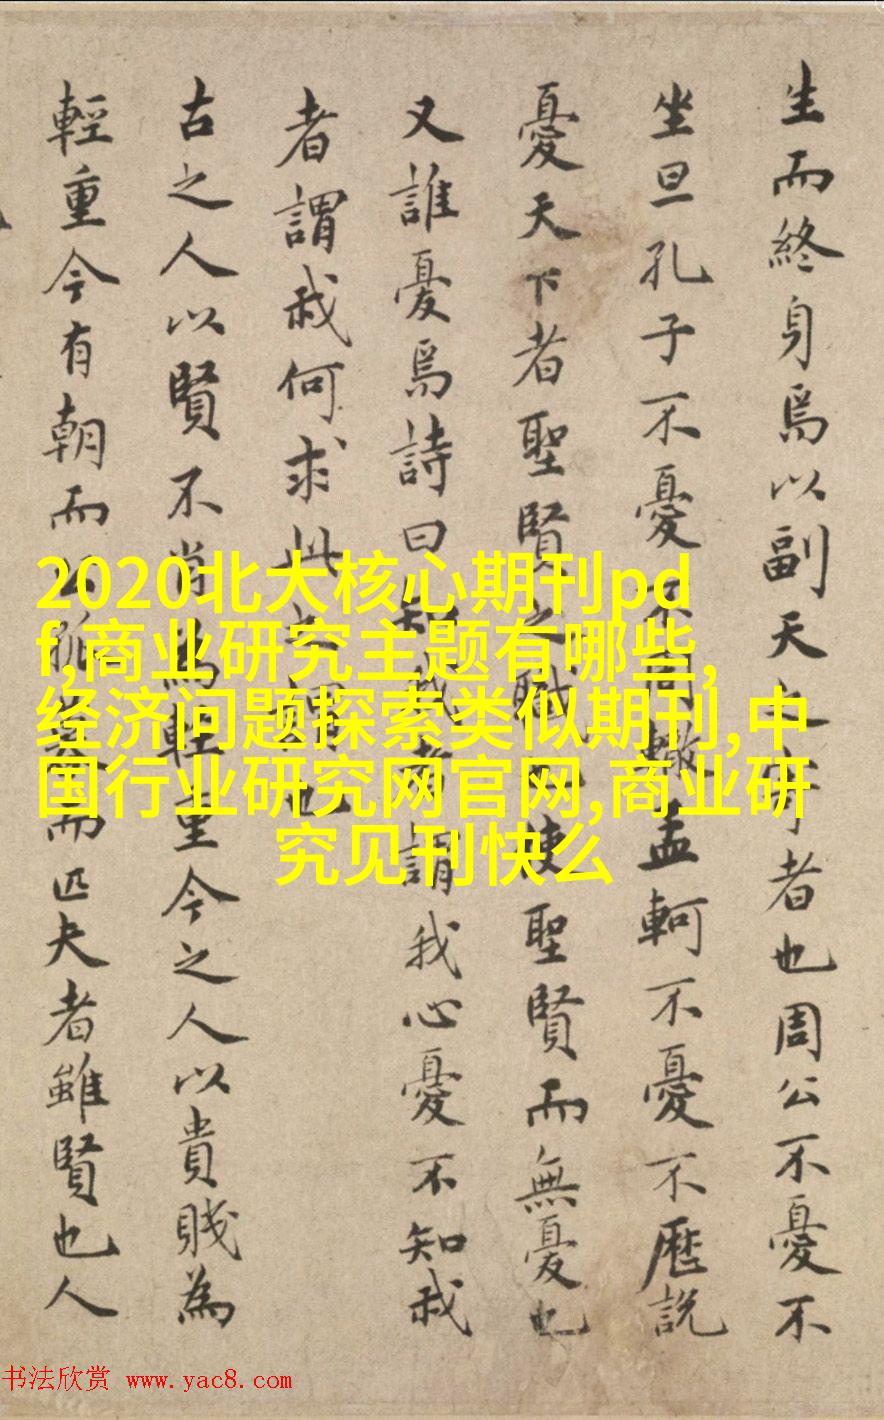 生而終身焉以副天之者也周公不憂不
坐旦孔子不憂不周轍孟軻不憂不歷説
憂天下者聖賢之職也使聖賢而無憂也
又誰憂焉詩曰知我者謂我心憂不知我
者謂我何求此之謂也
古之人以賢不肖為輕重今之人以貴賤為
輕重今有朝而公孤而匹夫者雖賢也人
2020北大核心期刊pd
f,商业研究主题有哪些,
经济问题探索类似期刊,中
国行业研究网官网,商业研
究见刊快么
书法欣赏 www.yac8.com